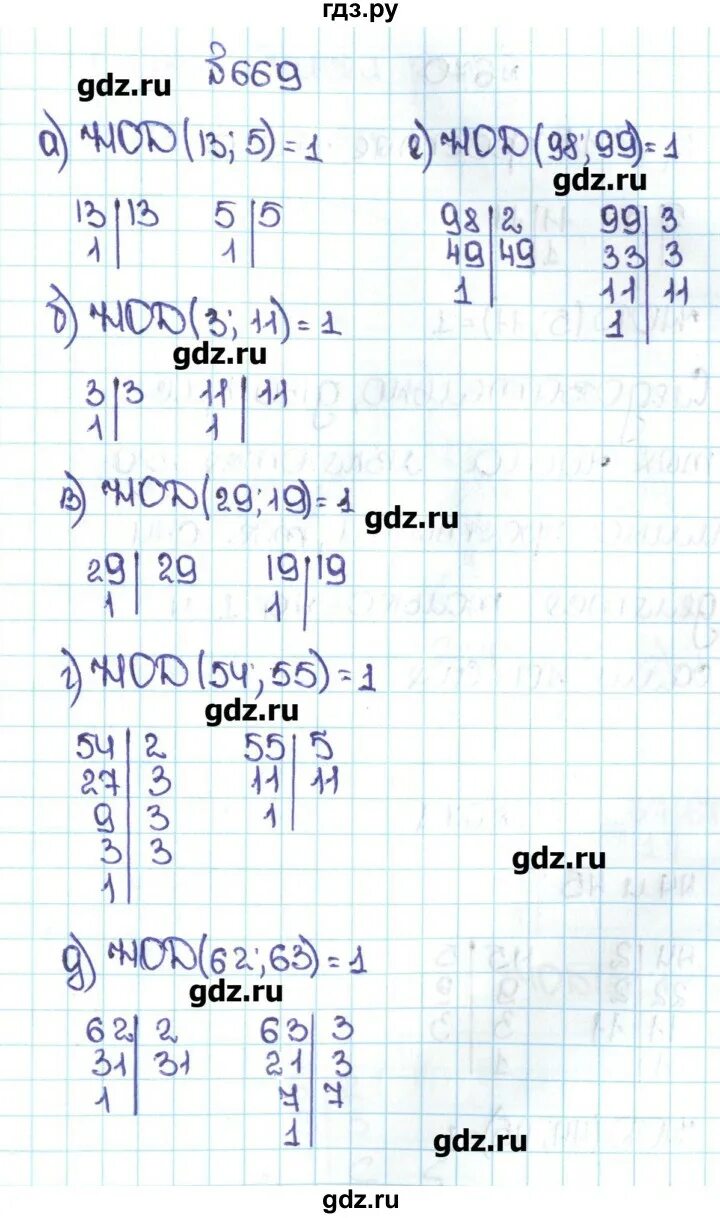 гдз.ру
№669
gdz.ru
а) НОD(13; 5) = 1
13 | 13 5 | 5
1 | 1 |
б) НОD(3; 11) = 1
gdz.ru
3 | 3 11 | 11
1 | 1 |
в) НОD(29; 19) = 1
gdz.ru
29 | 29 19 | 19
1 | 1 |
г) НОD(54; 55) = 1
gdz.ru
54 | 2 55 | 5
27 | 3 11 | 11
9 | 3 1 |
3 | 3
1 |
gdz.ru
д) НОD(62; 63) = 1
gdz.ru
62 | 2 63 | 3
31 | 31 21 | 3
1 | 7 | 7
1 |
gdz.ru
е) НОD(98; 99) = 1
gdz.ru
98 | 2 99 | 3
49 | 49 33 | 3
1 | 11 | 11
1 |
gdz.ru